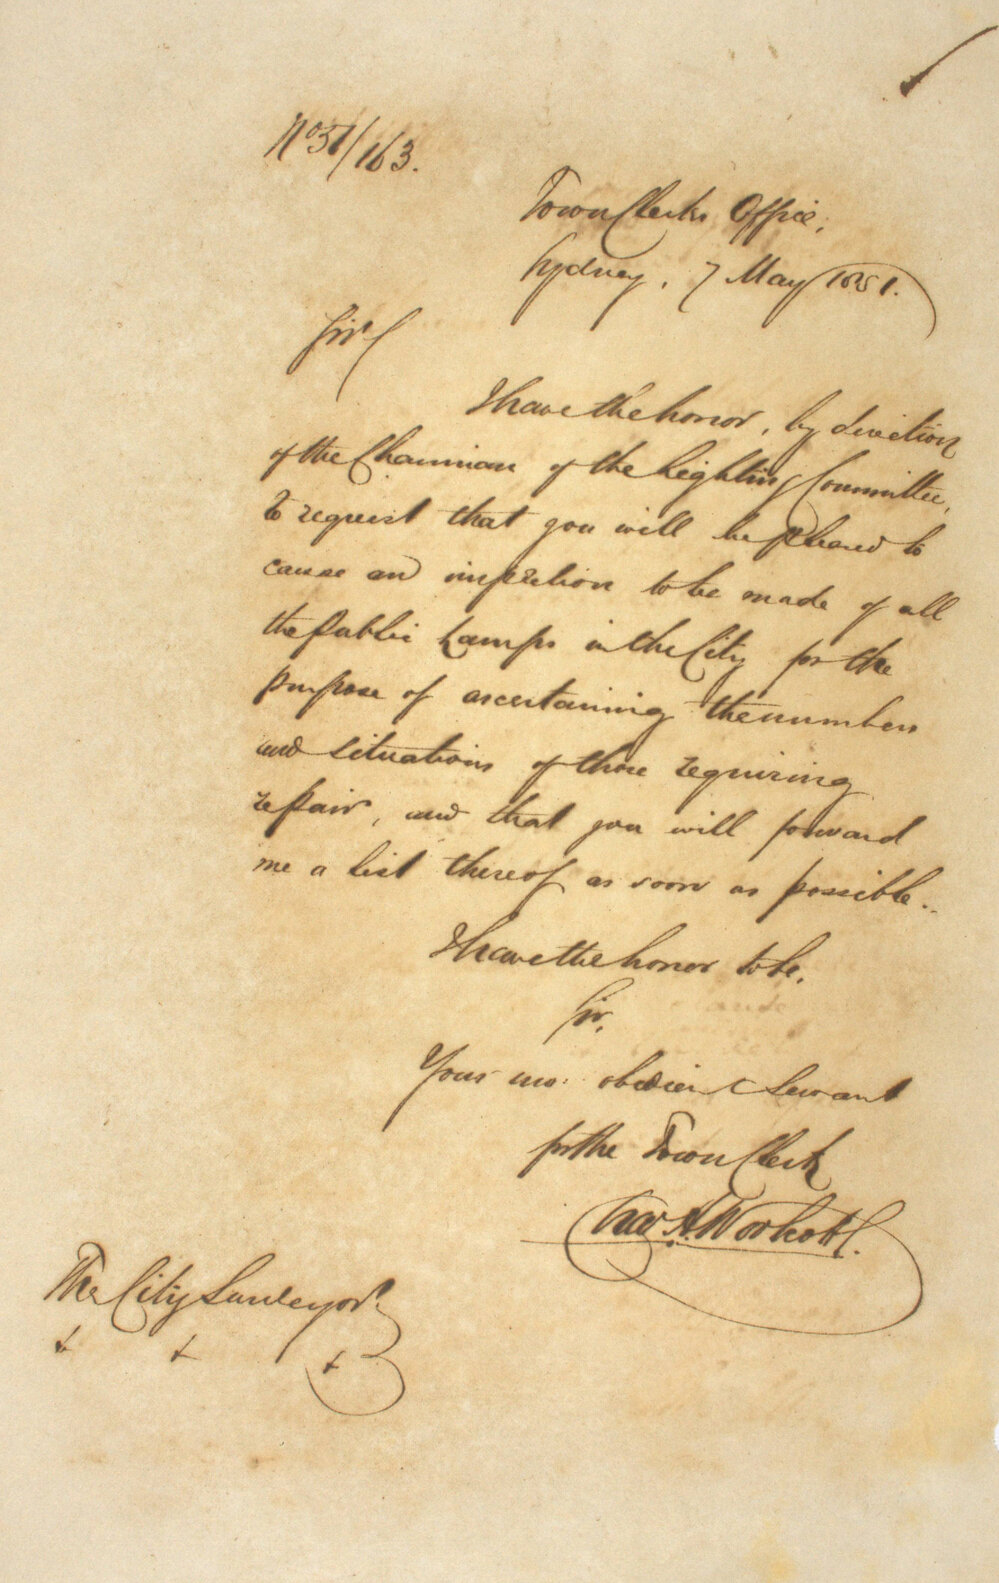 No 51/163.
Town Clerks Office,
Sydney, 7 May 1851.
Sir
I have the honor, by direction
of the Chairman of the Lighting Committee,
to request that you will be pleased to
cause an inspection to be made of all
the Public Lamps in the City for the
purpose of ascertaining the numbers
and situations of those requiring
repair, and that you will forward
me a list thereof as soon as possible..
I have the honor to be,
Sir,
Your mo: obedient Servant
for the Town Clerk
Chas. H. Woolcott.
The City Surveyor